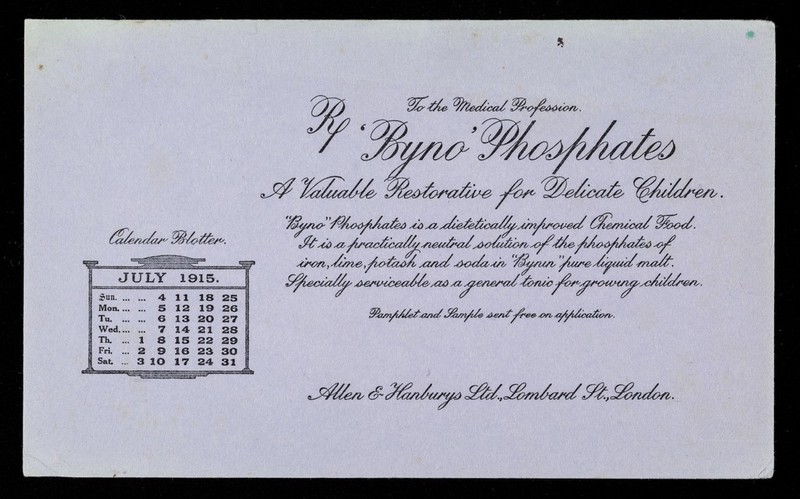 To the Medical Profession.
Rx 'Byno' Phosphates
A Valuable Restorative for Delicate Children.
"Byno" Phosphates is a dietetically improved Chemical Food.
It is a practically neutral solution of the phosphates of
iron, lime, potash and soda in "Bynin" pure liquid malt.
Specially serviceable as a general tonic for growing children.
Pamphlet and Sample sent free on application.
Allen & Hanburys Ltd., Lombard St., London.
Calendar Blotter.
JULY 1915.
Sun. ... ... 4 11 18 25
Mon. ... ... 5 12 19 26
Tu. ... ... 6 13 20 27
Wed. ... ... 7 14 21 28
Th. ... 1 8 15 22 29
Fri. ... 2 9 16 23 30
Sat. ... 3 10 17 24 31